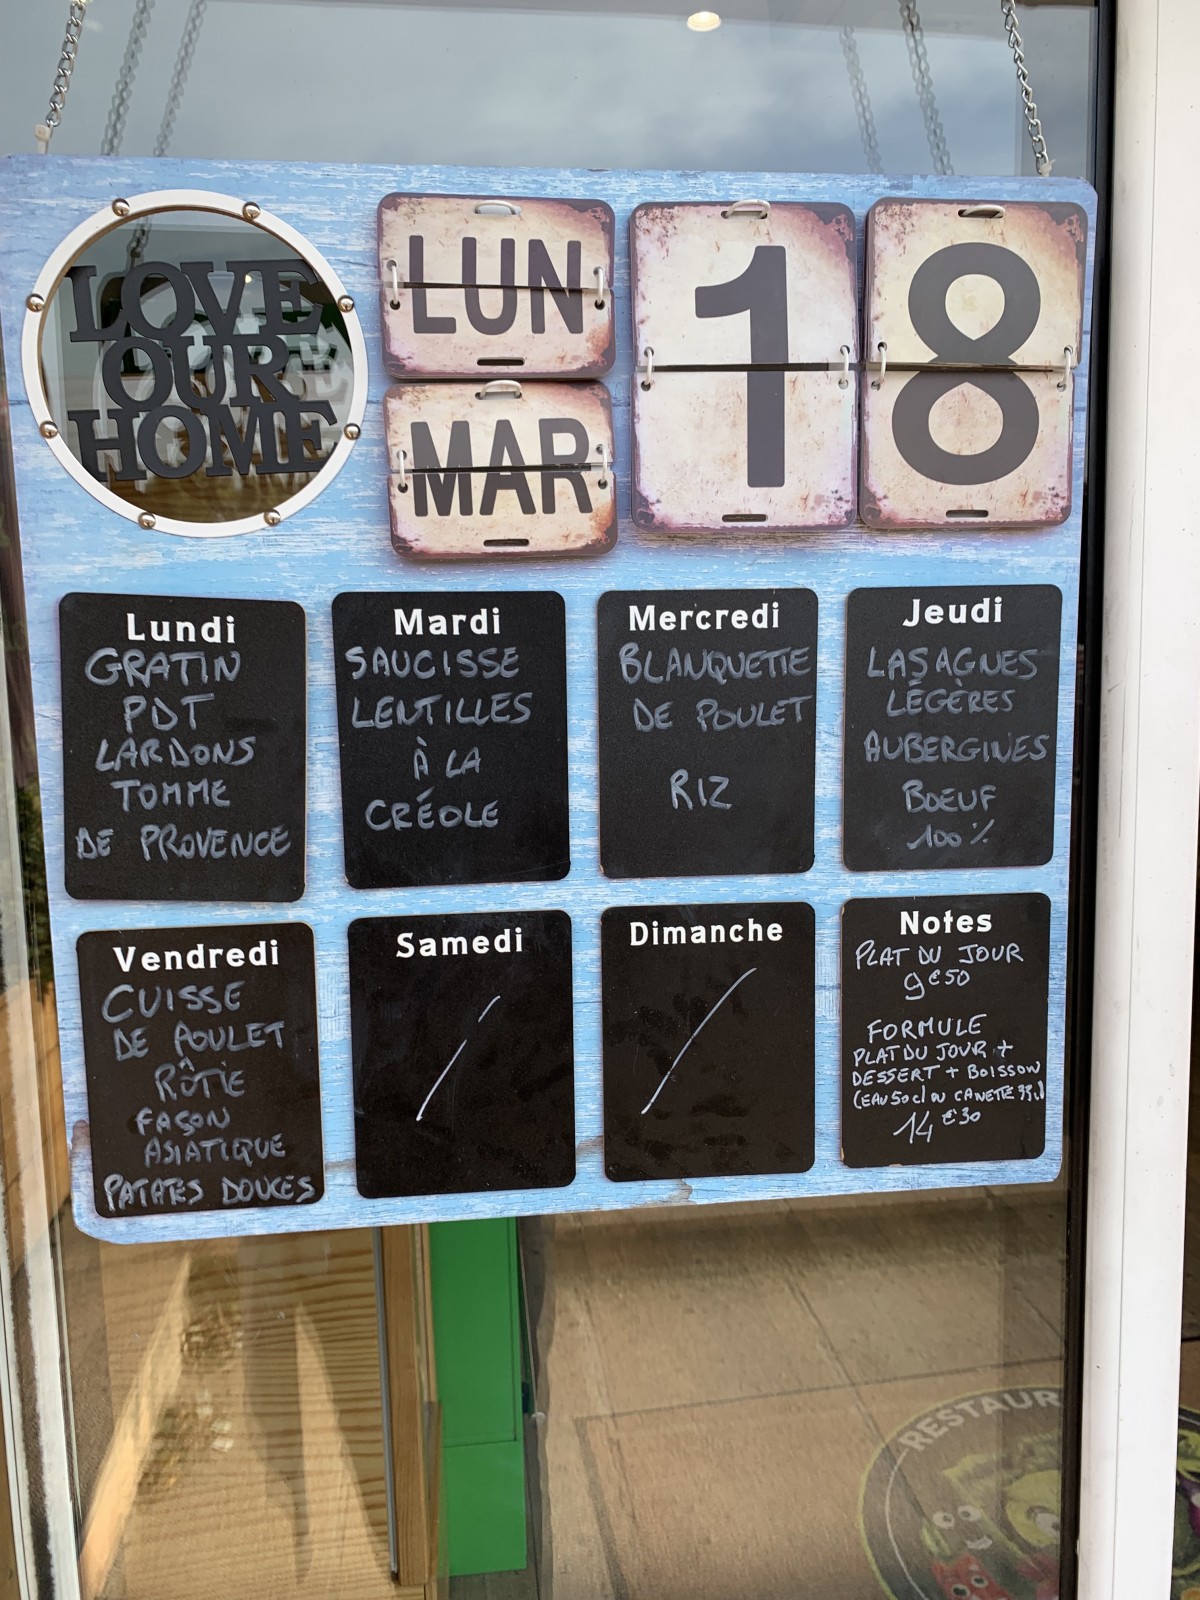 LOVE
OUR
HOME
LUN
MAR
18
Lundi
GRATIN
PDT
LARDONS
TOMME
DE PROVENCE
Mardi
SAUCISSE
LENTILLES
À LA
CRÉOLE
Mercredi
BLANQUETTE
DE POULET
RIZ
Jeudi
LASAGNES
LÉGÈRES
AUBERGINES
BOEUF
100%
Vendredi
CUISSE
DE POULET
RÔTIE
FAÇON
ASIATIQUE
PATATES DOUCES
Samedi
/
Dimanche
/
Notes
PLAT DU JOUR
9€50
FORMULE
PLAT DU JOUR +
DESSERT + BOISSON
(EAU 50cl OU CANETTE 33cl)
14€30
RESTAUR